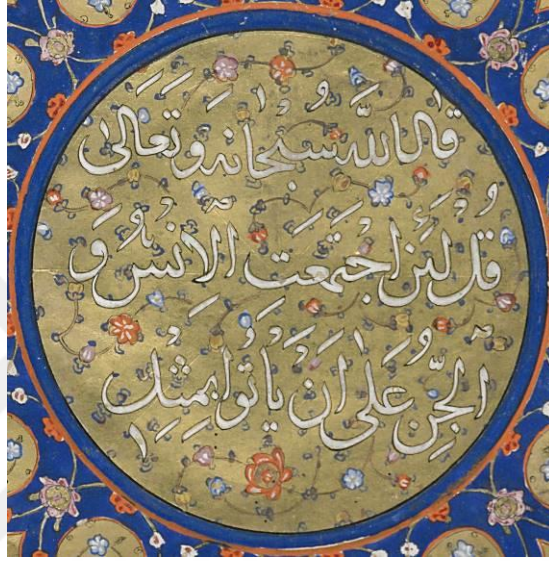 قَالَ اللَّهُ سُبْحَانَهُ وَتَعَالَى
قُلْ لَئِنِ اجْتَمَعَتِ الْاِنْسُ وَ
الْجِنُّ عَلَى اَنْ يَأْتُوا بِمِثْلِ